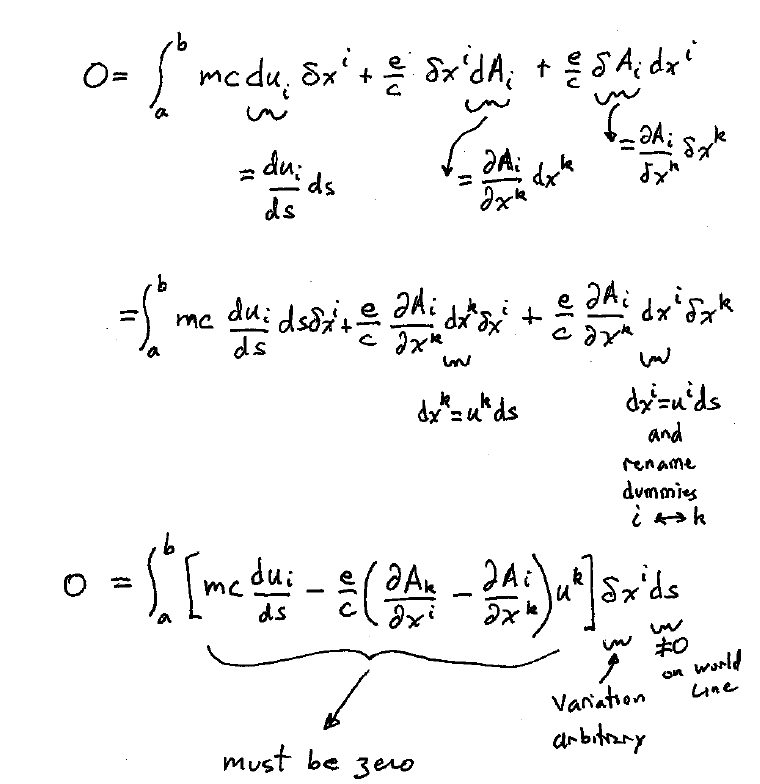 0 = ∫_a^b mc du_i δx^i + e/c δx^i dA_i + e/c δA_i dx^i
= du_i/ds ds
= ∂A_i/∂x^k dx^k
= ∂A_i/δx^k δx^k
= ∫_a^b mc du_i/ds ds δx^i + e/c ∂A_i/∂x^k dx^k δx^i + e/c ∂A_i/∂x^k dx^i δx^k
dx^k = u^k ds
dx^i = u^i ds
and
rename
dummies
i ↔ k
0 = ∫_a^b [mc du_i/ds − e/c (∂A_k/∂x^i − ∂A_i/∂x^k) u^k] δx^i ds
≠0
on world
line
variation
arbitrary
must be zero